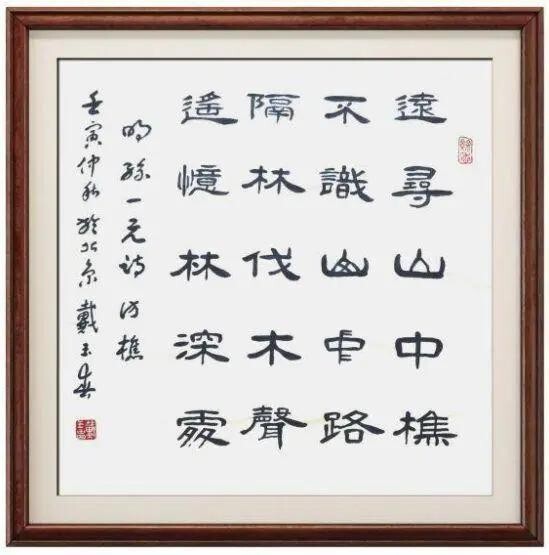 遠尋山中樵
不識山中路
隔林伐木聲
遙憶林深處
明孫一元詩訪樵
壬寅仲秋於北京戴玉